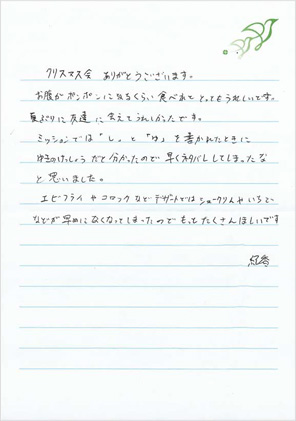 クリスマス会 ありがとうございます。
お腹がポンポンになるくらい食べれてとってもうれしいです。
夏ぶりに友達に会えてうれしかったです。
ミッションでは「し」と「ゆ」を書かれたときに
ゆきのけっしょうだと分かったので早くネタバレしてしまったな
と思いました。
エビフライやコロッケなどデザートではシュークリームやいちごなどが早めになくなってしまったのでもっとたくさんほしいです